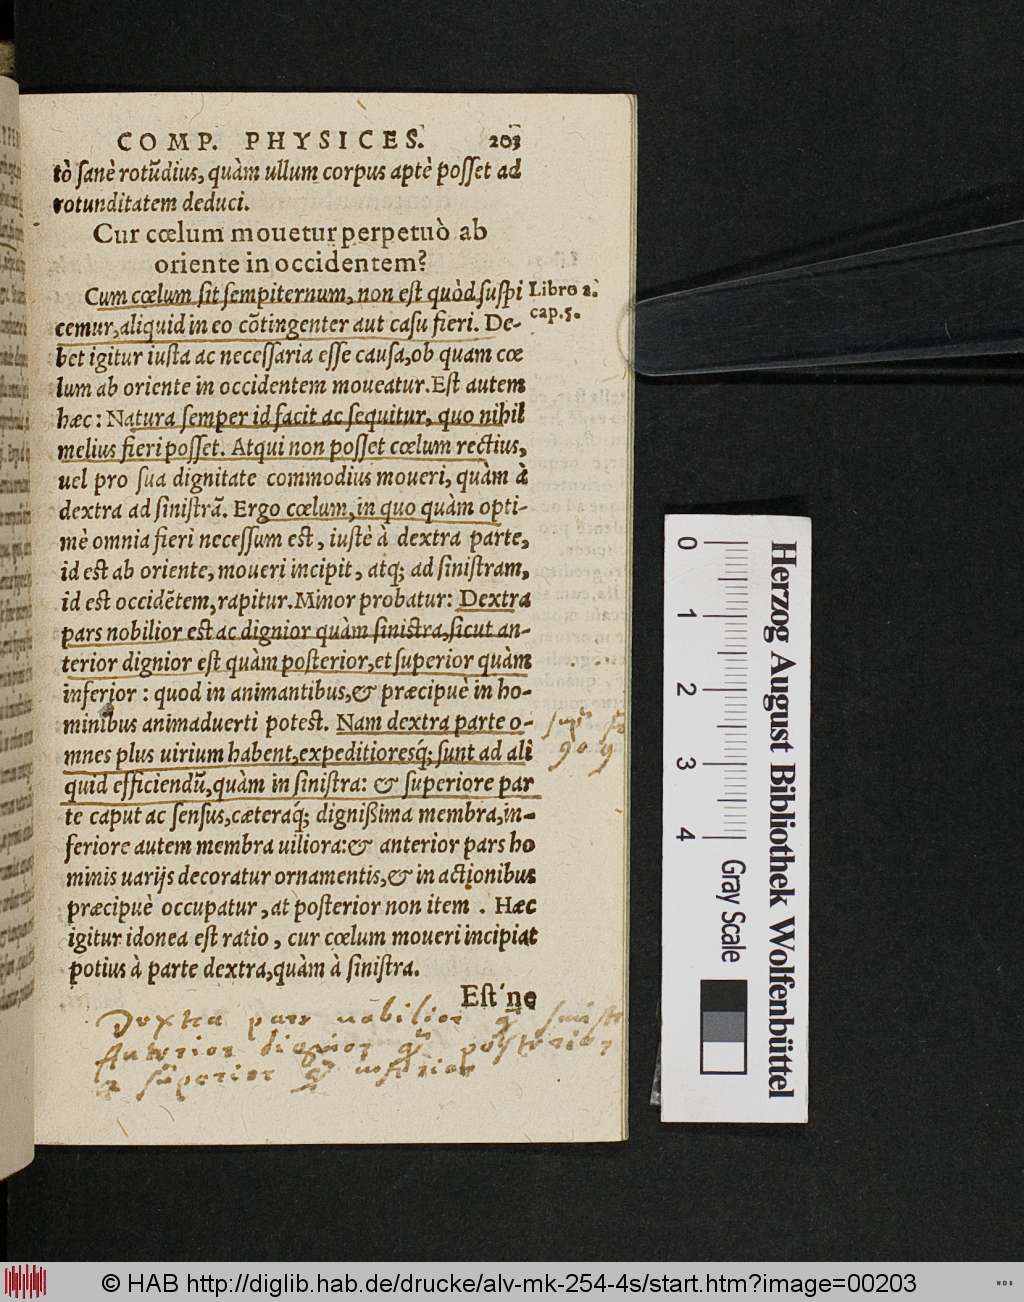 COMP. PHYSICES. 203
tò ſanè rotũdius, quàm ullum corpus aptè poſſet ad
rotunditatem deduci.
Cur cœlum mouetur perpetuò ab
oriente in occidentem?
Cum cœlum ſit ſempiternum, non eſt quòd ſuſpi
Libro 2.
cemur, aliquid in eo cõtingenter aut caſu fieri. De-
cap. 5.
bet igitur iuſta ac neceſſaria eſſe cauſa, ob quam cœ
lum ab oriente in occidentem moueatur. Eſt autem
hæc: Natura ſemper id facit ac ſequitur, quo nihil
melius fieri poſſet. Atqui non poſſet cœlum rectius,
uel pro ſua dignitate commodius moueri, quàm à
dextra ad ſiniſtrã. Ergo cœlum, in quo quàm opti-
mè omnia fieri neceſſum eſt, iuſtè à dextra parte,
id eſt ab oriente, moueri incipit, atq; ad ſiniſtram,
id eſt occidẽtem, rapitur. Minor probatur: Dextra
pars nobilior eſt ac dignior quàm ſiniſtra, ſicut an-
terior dignior eſt quàm poſterior, et ſuperior quàm
inferior: quod in animantibus, & præcipuè in ho-
minibus animaduerti poteſt. Nam dextra parte o-
mnes plus uirium habent, expeditioresq́; ſunt ad ali
quid efficiendũ, quàm in ſiniſtra: & ſuperiore par
te caput ac ſenſus, cæteraq́; digniſsima membra, in-
feriore autem membra uiliora: & anterior pars ho
minis uarijs decoratur ornamentis, & in actionibus
præcipuè occupatur, at poſterior non item. Hæc
igitur idonea eſt ratio, cur cœlum moueri incipiat
potius à parte dextra, quàm à ſiniſtra.
Eſt ne
Dextra pars nobilior
Anterior dignior posterior
superior inferior
0 1 2 3 4
Gray Scale
Herzog August Bibliothek Wolfenbüttel
© HAB http://diglib.hab.de/drucke/alv-mk-254-4s/start.htm?image=00203